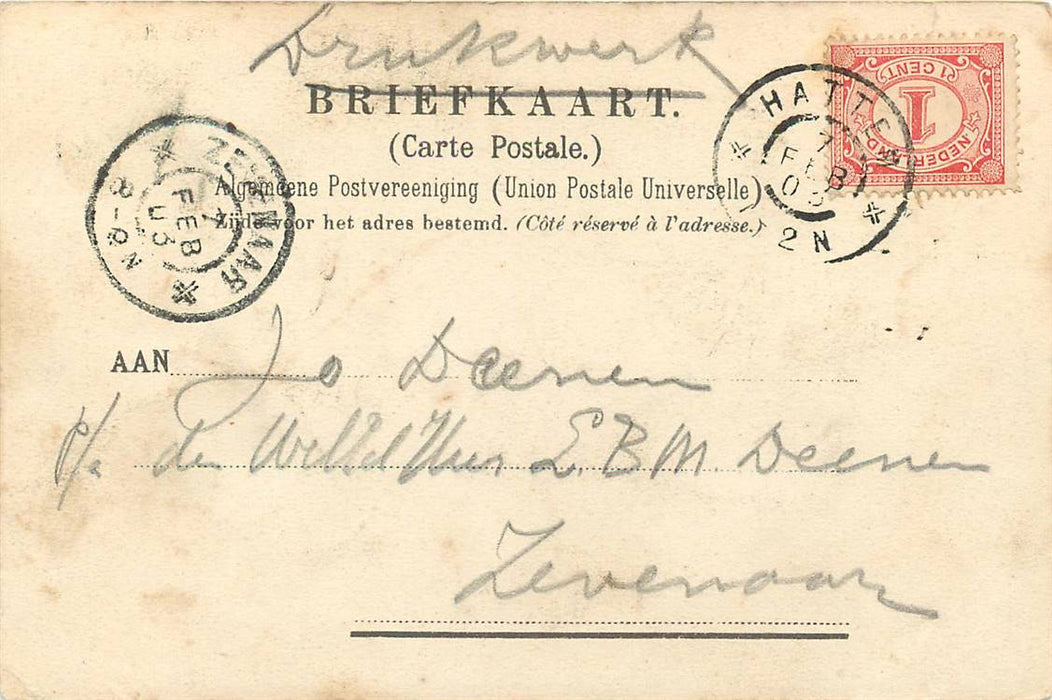 Drukwerk
BRIEFKAART.
(Carte Postale.)
Algemeene Postvereeniging (Union Postale Universelle)
Zijde voor het adres bestemd. (Côté réservé à l'adresse.)
HATTEM
7 FEB 03
2 N
NEDERLAND
1 CENT
1
ZEVENAAR
7 FEB 03
8-9N
AAN Jo Deenen
p/a den WelEd Heer E.B.M. Deenen
Zevenaar